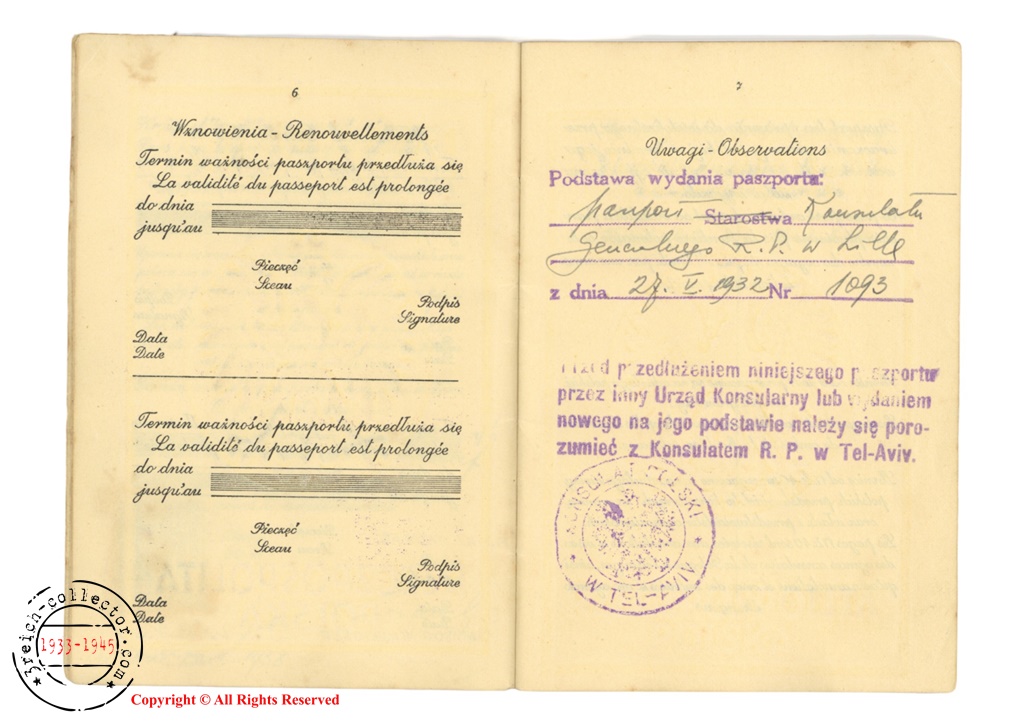 6
Wznowienia - Renouvellements
Termin ważności paszportu przedłuża się
La validité du passeport est prolongée
do dnia
jusqu'au
Pieczęć
Sceau
Podpis
Signature
Data
Date
Termin ważności paszportu przedłuża się
La validité du passeport est prolongée
do dnia
jusqu'au
Pieczęć
Sceau
Podpis
Signature
Data
Date
7
Uwagi - Observations
Podstawa wydania paszportu:
paszport Starostwa Konsulatu
Generalnego R.P. w Lille
z dnia 27. V. 1932 Nr 1093
Przed przedłużeniem niniejszego paszportu
przez inny Urząd Konsularny lub wydaniem
nowego na jego podstawie należy się poro-
zumieć z Konsulatem R. P. w Tel-Aviv.
KONSULAT POLSKI
W TEL-AVIV
3reich-collector.com
1933-1945
Copyright © All Rights Reserved